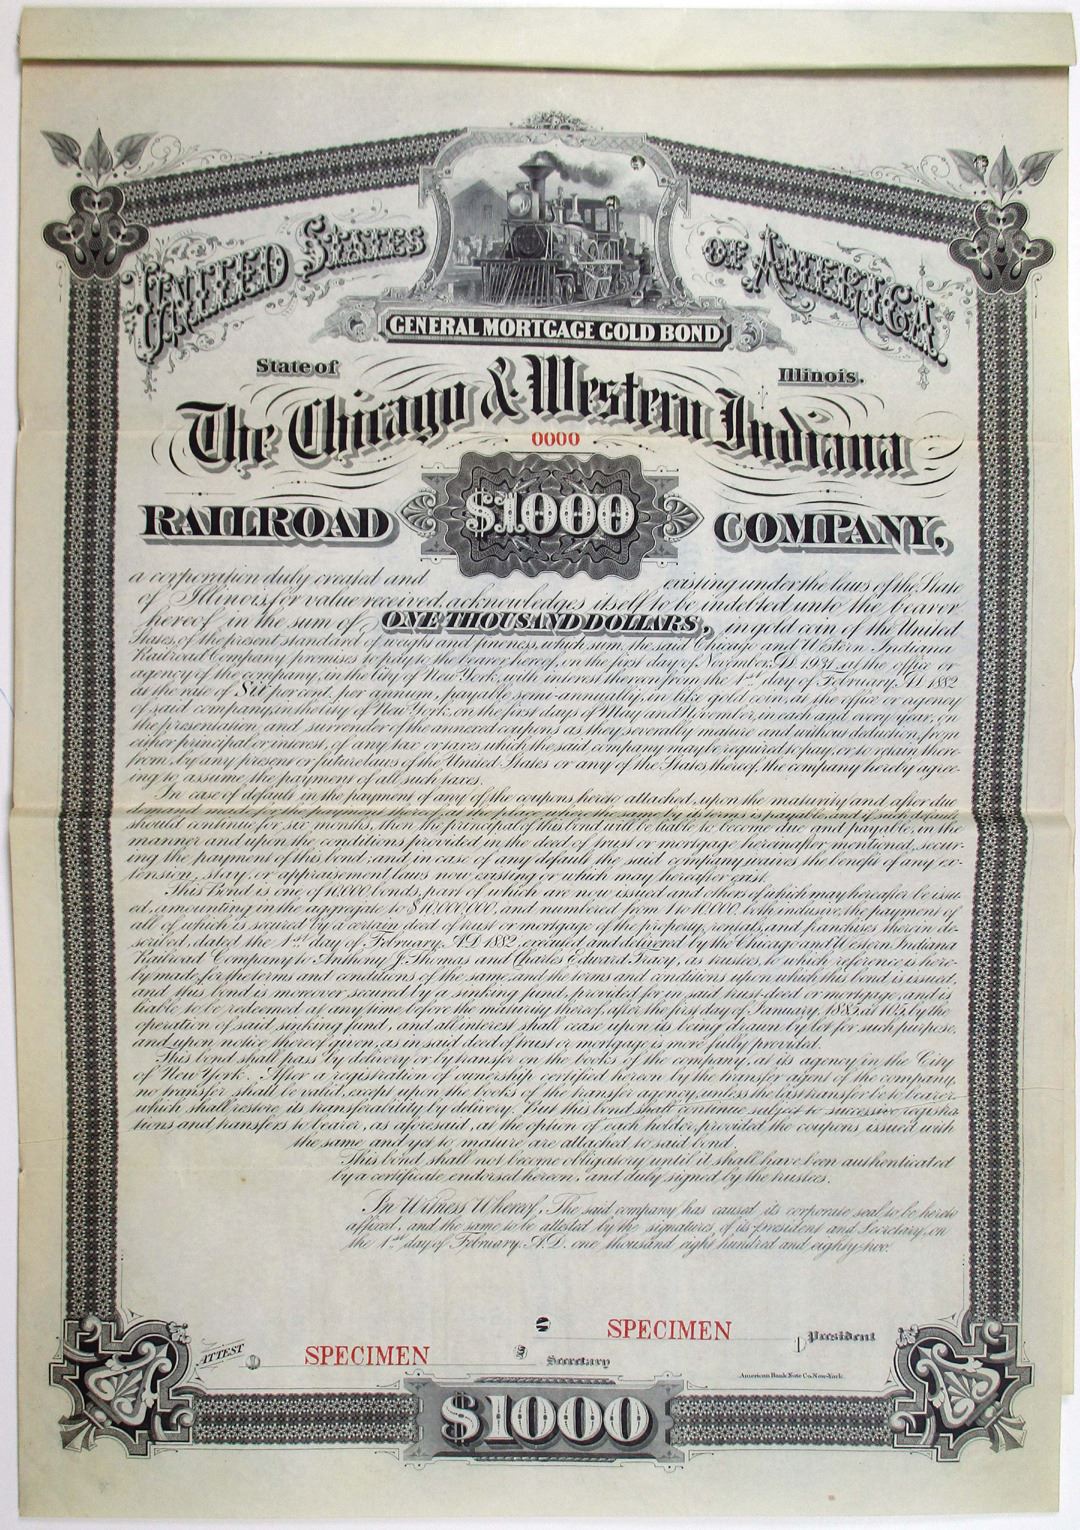 UNITED STATES OF AMERICA.
GENERAL MORTGAGE GOLD BOND
State of Illinois.
The Chicago & Western Indiana
0000
RAILROAD $1000 COMPANY,
a corporation duly created and existing under the laws of the State
of Illinois, for value received, acknowledges itself to be indebted unto the bearer
hereof, in the sum of ONE THOUSAND DOLLARS, in gold coin of the United
States, of the present standard of weight and fineness, which sum, the said Chicago and Western Indiana
Railroad Company promises to pay to the bearer hereof, on the first day of November, A.D. 1931, at the office or
agency of the company, in the City of New York, with interest thereon from the 1st day of February, A.D. 1882
at the rate of Six per cent. per annum, payable semi-annually, in like gold coin, at the office or agency
of said company, in the City of New York, on the first days of May and November, in each and every year, on
the presentation and surrender of the annexed coupons as they severally mature and without deduction, from
either principal or interest, of any tax or taxes which the said company may be required to pay, or to retain there-
from, by any present or future laws of the United States or any of the States thereof, the company hereby agree-
ing to assume the payment of all such taxes.
In case of default in the payment of any of the coupons, hereto attached, upon the maturity and after due
demand made for the payment thereof, at the place where the same by its terms is payable, and if such default
should continue for six months, then the principal of this bond will be liable to become due and payable, in the
manner and upon the conditions provided in the deed of trust or mortgage hereinafter mentioned, secur-
ing the payment of this bond; and, in case of any default, the said company waives the benefit of any ex-
tension, stay, or appraisement laws now existing or which may hereafter exist.
This Bond is one of 10,000 bonds, part of which are now issued and others of which may hereafter be issu-
ed, amounting in the aggregate to $10,000,000, and numbered from 1 to 10,000, both inclusive, the payment of
all of which is secured by a certain deed of trust or mortgage of the property, rentals, and franchises therein de-
scribed, dated the 1st day of February, A.D. 1882, executed and delivered by the Chicago and Western Indiana
Railroad Company to Anthony J. Thomas and Charles Edward Tracy, as trustees, to which reference is here-
by made, for the terms and conditions of the same, and the terms and conditions upon which this bond is issued,
and this bond is moreover secured by a sinking fund, provided for in said trust-deed or mortgage, and is
liable to be redeemed at any time, before the maturity thereof, after the first day of January, 1885, at 105, by the
operation of said sinking fund, and all interest shall cease upon its being drawn by lot for such purpose,
and upon notice thereof given, as in said deed of trust or mortgage is more fully provided.
This bond shall pass by delivery or by transfer on the books of the company, at its agency in the City
of New York. After a registration of ownership certified hereon by the transfer agent of the company,
no transfer shall be valid, except upon the books of the transfer agency, unless the last transfer be to bearer,
which shall restore its transferability by delivery. But this bond shall continue subject to successive registra-
tions and transfers to bearer, as aforesaid, at the option of each holder, provided the coupons, issued with
the same and yet to mature are attached to said bond.
This bond shall not become obligatory until it shall have been authenticated
by a certificate, endorsed hereon, and duly signed by the trustees.
In Witness Whereof, The said company has caused its corporate seal to be hereto
affixed, and the same to be attested by the signatures of its president and Secretary, on
the 1st day of February, A.D. one thousand eight hundred and eighty-two.
SPECIMEN President
ATTEST SPECIMEN Secretary
American Bank Note Co. New-York.
$1000